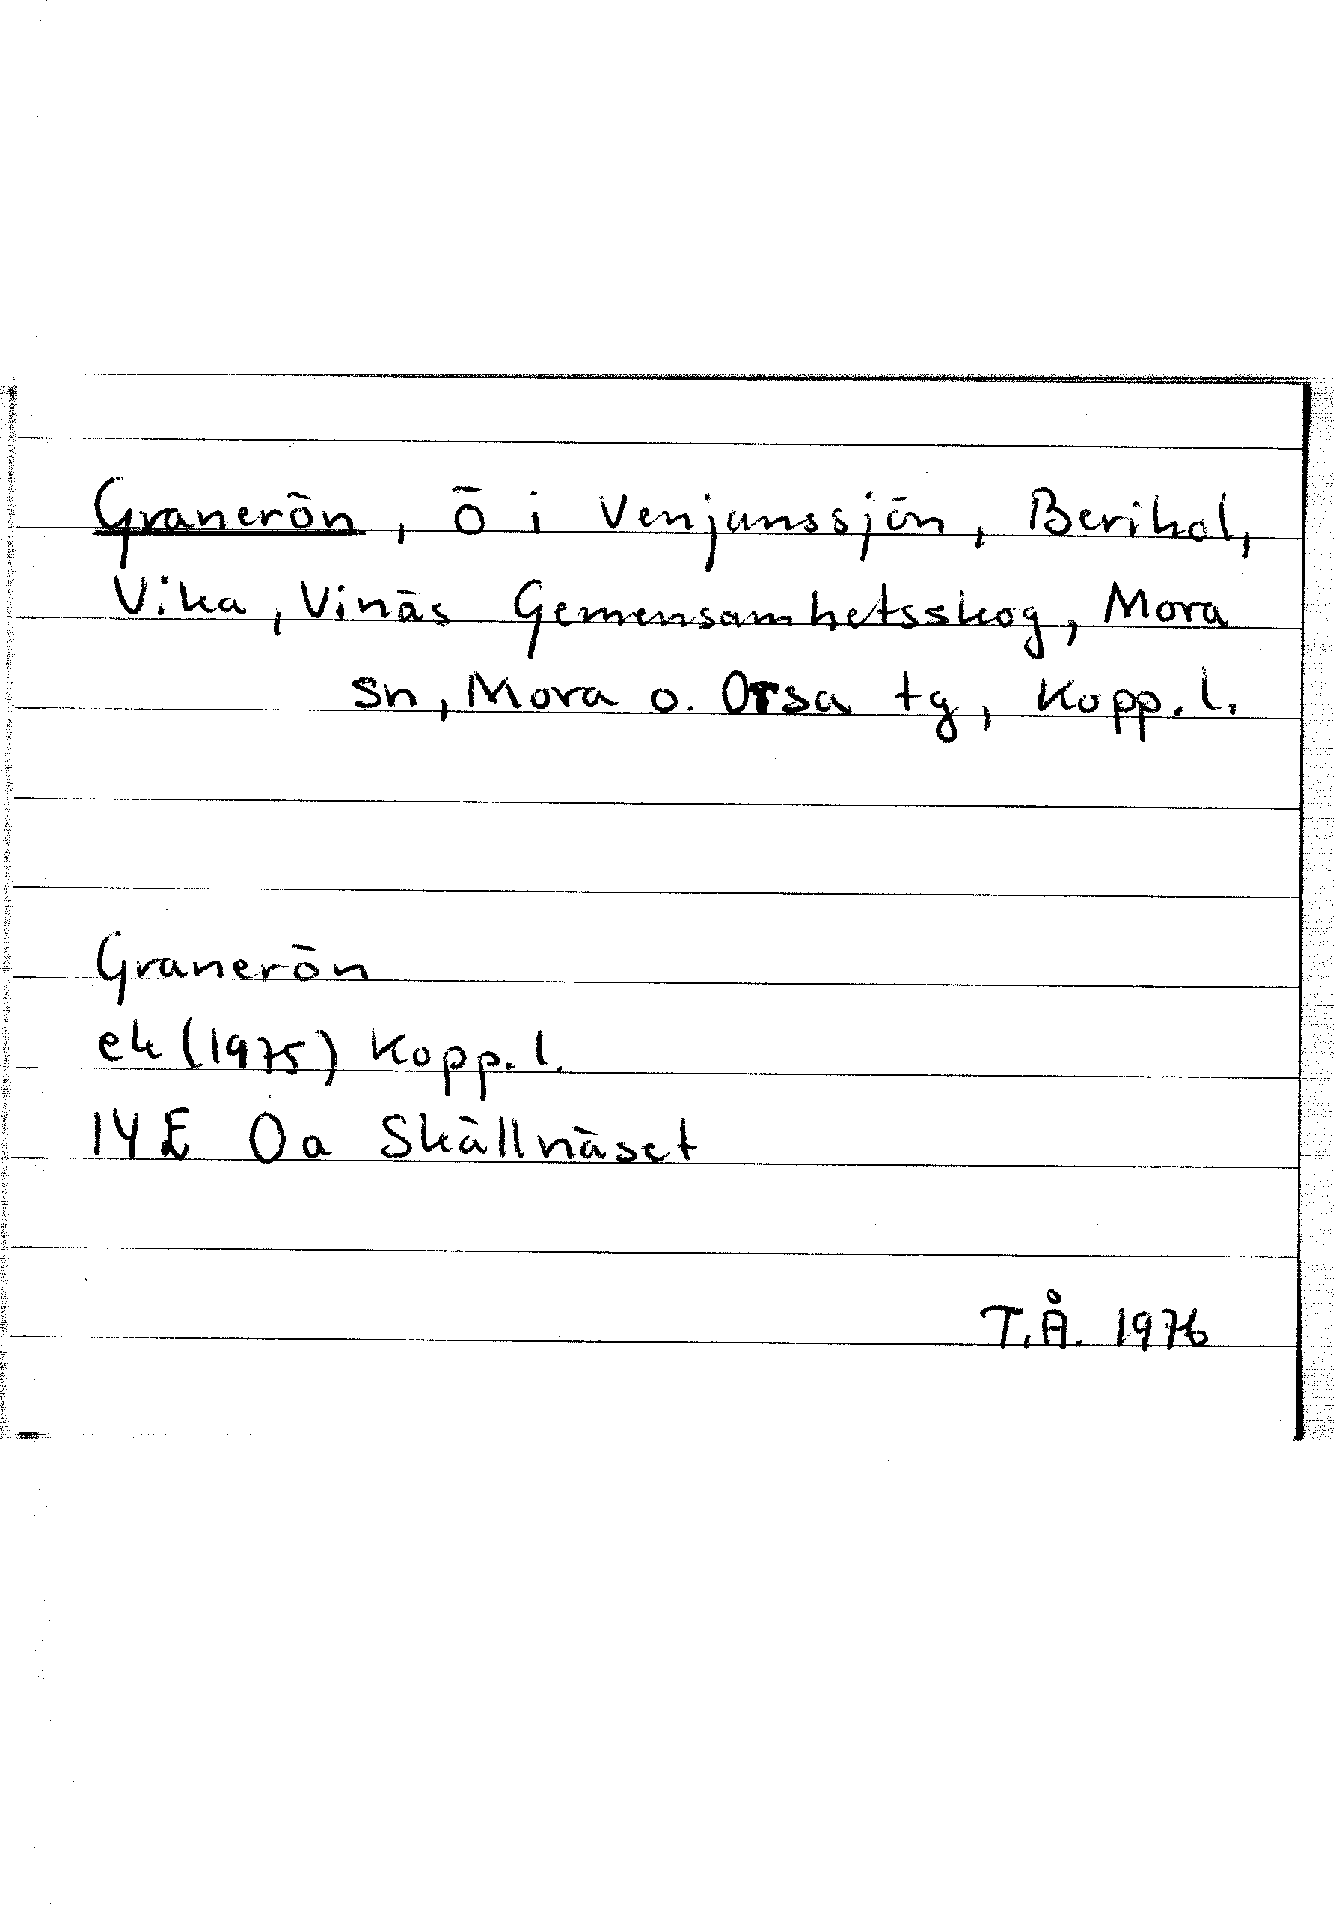 Granerön, Ö i Venjanssjön, Berikol,
Vika, Vinäs Gemensamhetsskog, Mora
sn, Mora o. Orsa tg, Kopp. l.
Granerön
ek (1975) Kopp. l.
14E 0a Skällnäset
T.Å. 1976